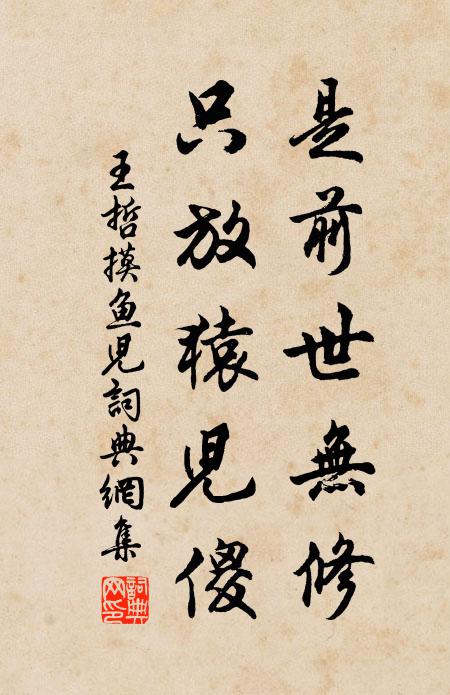 是前世無修
只放猿児傻
王哲摸魚児詞典網集
詞典网印